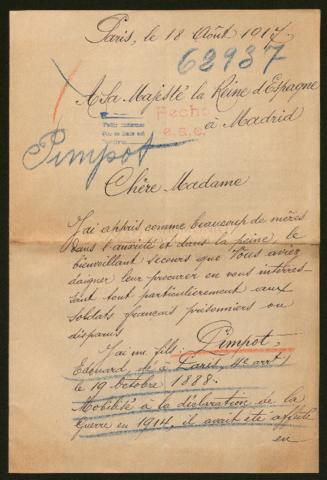 Paris, le 18 Août 1917.
62937
A Sa Majesté la Reine d'Espagne
à Madrid
Pimpot
Chère Madame
J'ai appris comme beaucoup de mères
dans l'anxiété et dans la peine, le
bienveillant secours que Vous aviez
daigner leur procurer en vous interres-
sant tout particulièrement aux
soldats français prisonniers ou
disparus
J'ai un fils: Pimpot,
Edouard, né à Paris, 4e arrt
le 19 Octobre 1888.
Mobilisé à la déclaration de la
Guerre en 1914, il avait été affecté
en